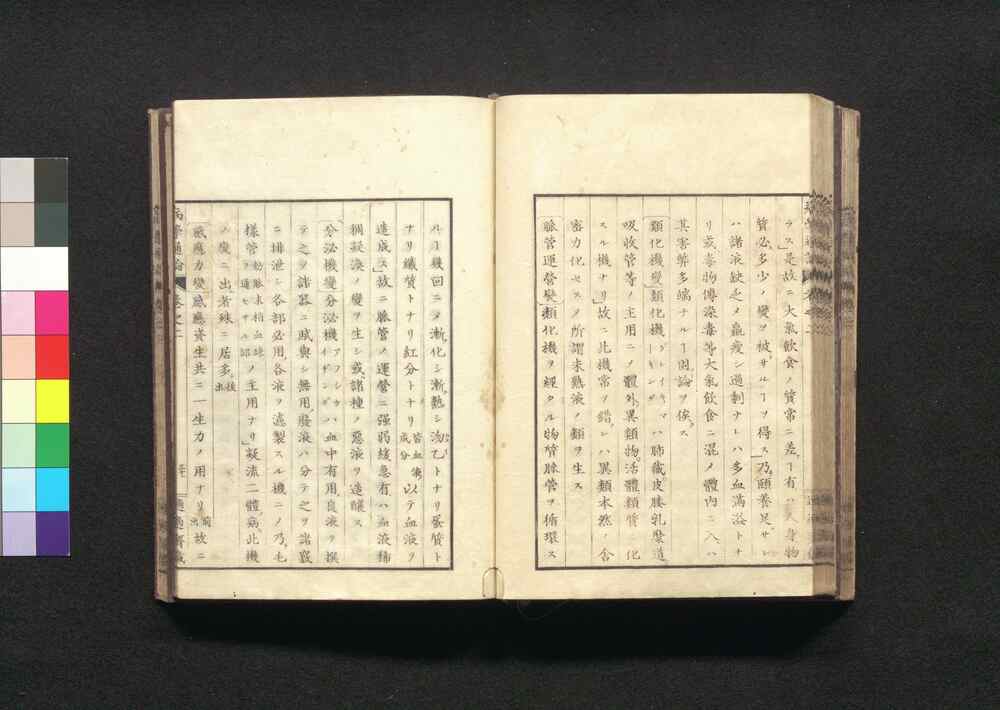 ラス」是故ニ大氣飲食ノ質常ニ差ヿ有ハ人身物
質必多少ノ變ヲ被サルヿヲ得ス乃頤養足サレ
ハ諸液缺乏〆羸瘦シ過剩ナレハ多血滿溢トナ
リ亥毒物傳染毒等大氣飲食ニ混〆體内ニ入ハ
其害弊多端ナルヿ固論ヲ俟ス
類化機變類化機ハ肺臓皮腠乳糜道
吸收管等ノ主用ニ〆體外異類物活體類質ニ化
スル機ナリ故ニ此機常ヲ錯レハ異類本然ノ舍
密力化セスノ所謂未熟液ノ類ヲ生ス
脈管運營變類化機ヲ經タル物質脉管ヲ循環ス
ルヿ幾回ニ〆漸化シ漸熟シ泑乙トナリ蛋質ト
ナリ纖質トナリ紅分トナリ皆血成分以テ血液ヲ
造成ス」故ニ脈管ノ運營ニ強弱緩急有ハ血液稀
稠凝渙ノ變ヲ生シ或諸種ノ惡液ヲ造釀ス
分泌機變分泌機ハ血中有用良液ヲ撰
テ之ヲ諸器ニ賦與シ無用廢液ハ分テ之ヲ諸竅
ニ排泄シ各部必用各液ヲ濾製スル機ニ〆乃毛
樣管ノ主用ナリ」凝流二體病此機
ノ變ニ出者殊ニ居多後出
感應力變感應資生共ニ一生力ノ用ナリ前出故ニ
病學通論
卷之二